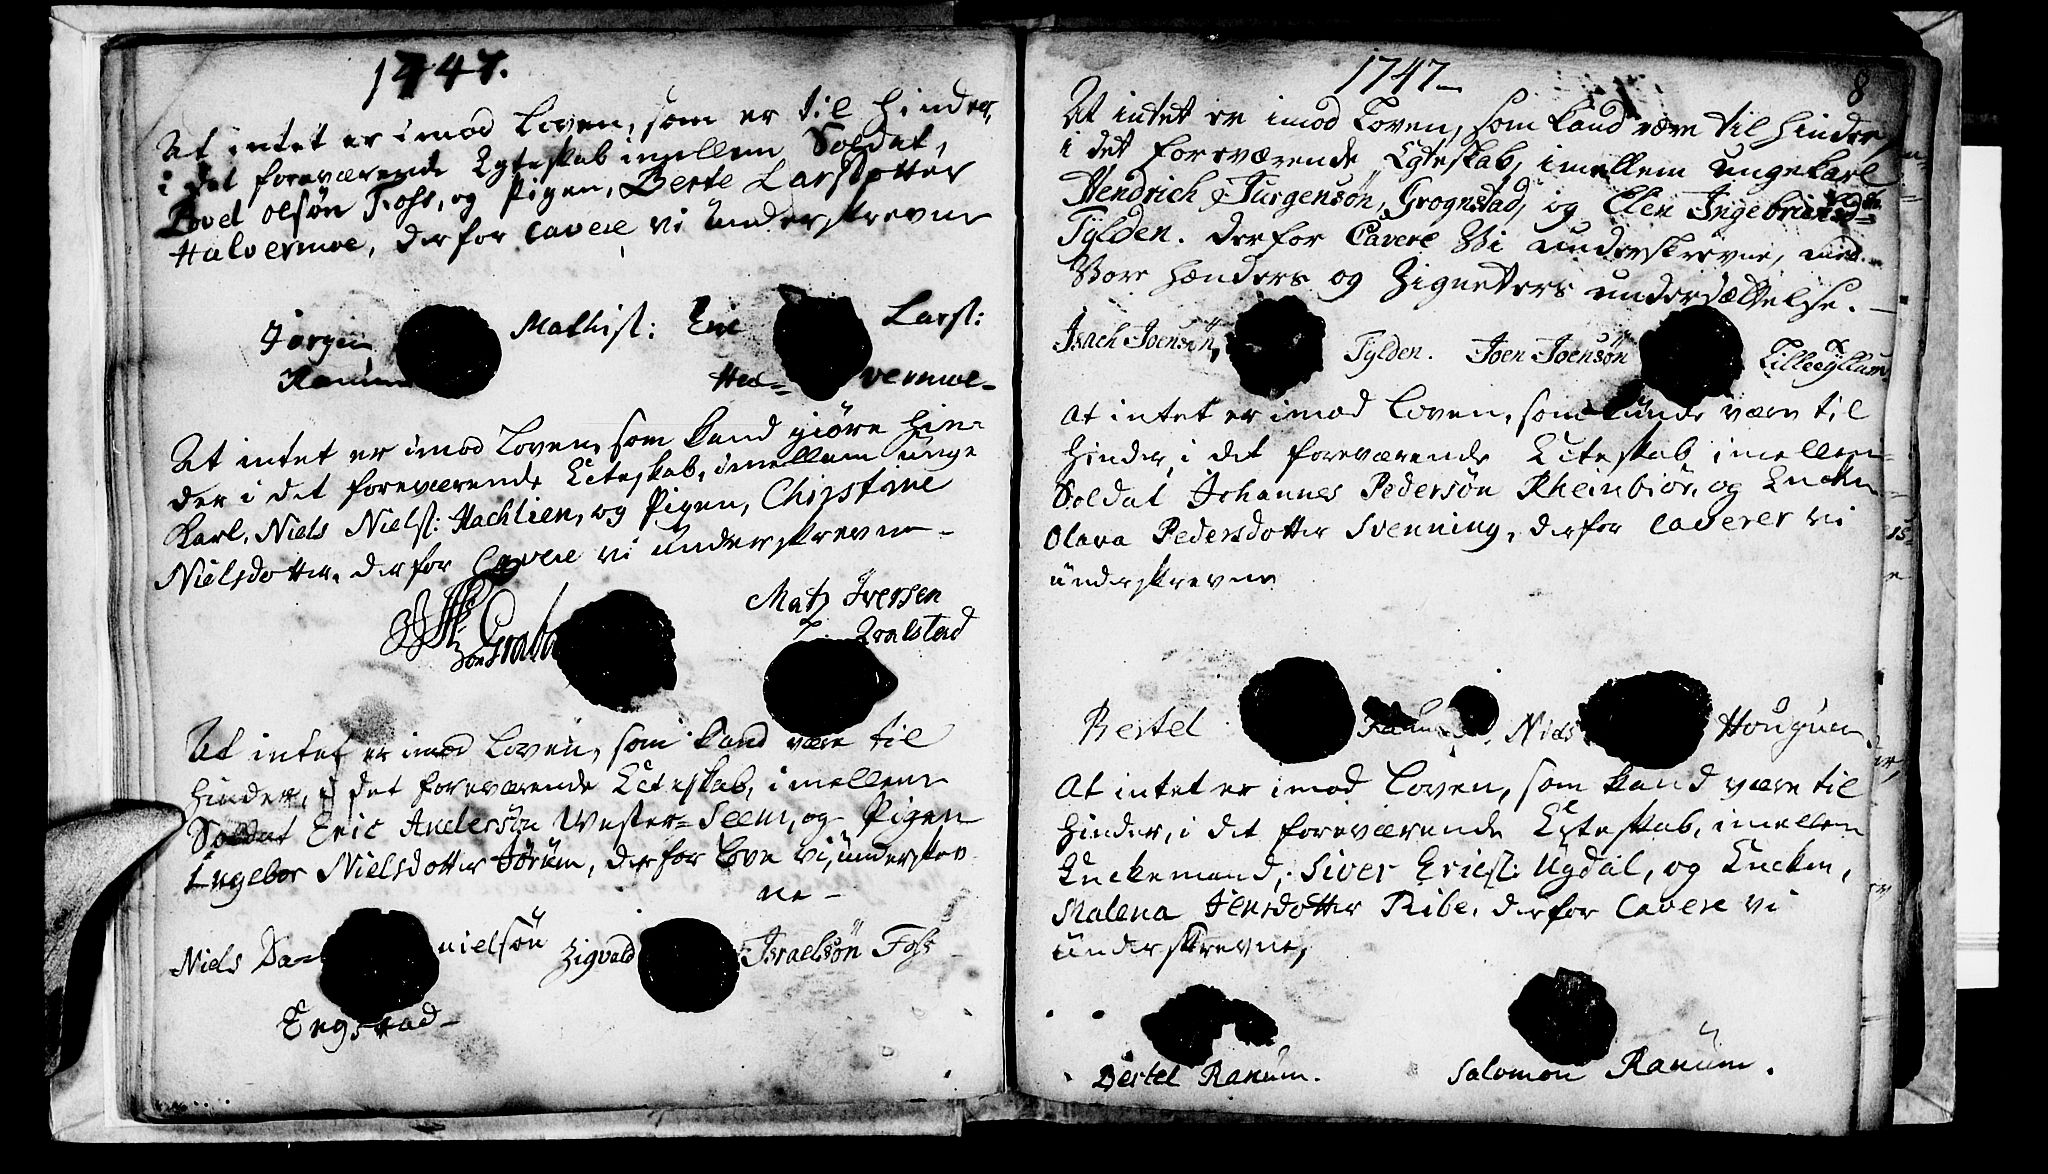 1747.
At intet er imod Loven, som er til Hinder,
i det foreværende Egteskab imellem Soldat,
Povel Olsøn Foss, og Pigen, Berte Larsdotter
Halvermoe, derfor Cavere vi underskrevne
Jørgen Mathisl: Eric Larsl:
Ranum Hal= vermoe-
At intet er imod Loven, som kand giøre Hin=
der i det foreværende Ecteskab, imellem unge
Karl, Niels Nielsl: Hachlien, og Pigen, Chirstine
Nielsdotter, derfor Cavere vi underskrevne-
Matz Iversen
von Grabo Qvalstad
At intet er imod Loven, som kand være til
Hinder, i det foreværende Ecteskab, imellem
Soldat Eric Andersøn Wester=Seem, og Pigen
Ingebor Nielsdotter Jørum, derfor Love vi, underskrev
ne-
Niels Da= nielsøn Zigvald Israelsøn Foss
Engstad-
1747-
8
At intet er imod Loven, som kand være til Hinder
i det forværende Egteskab, imellem ungekarl
Hendrich Jürgensøn, Grognstad, og Elen Ingebricktsd=
Tylden. derfor Cavere Vi underskrevne, med
Vore Hænders og Zignetters undersættelse.-
Isach Joensøn, Tylden. Joen Joensøn Lilleøyllum
At intet er imod Loven, som kunde være til
Hinder, i det foreværende Ecteskab imellem
Soldat Johannes Pedersøn Rheinbiør, og Encken
Olava Pedersdotter Svenning, derfor Caverer vi
underskrevne
Bertel Ranum. Niels Hougum
At intet er imod Loven, som kand være til
Hinder, i det foreværende Egteskab, imellem
Enckemand, Siver Ericsl: Ugdal, og Encken,
Malena Jensdotter Ribe, derfor Cavere vi
underskrevne,
Bertel Ranum. Salomon Ranum.